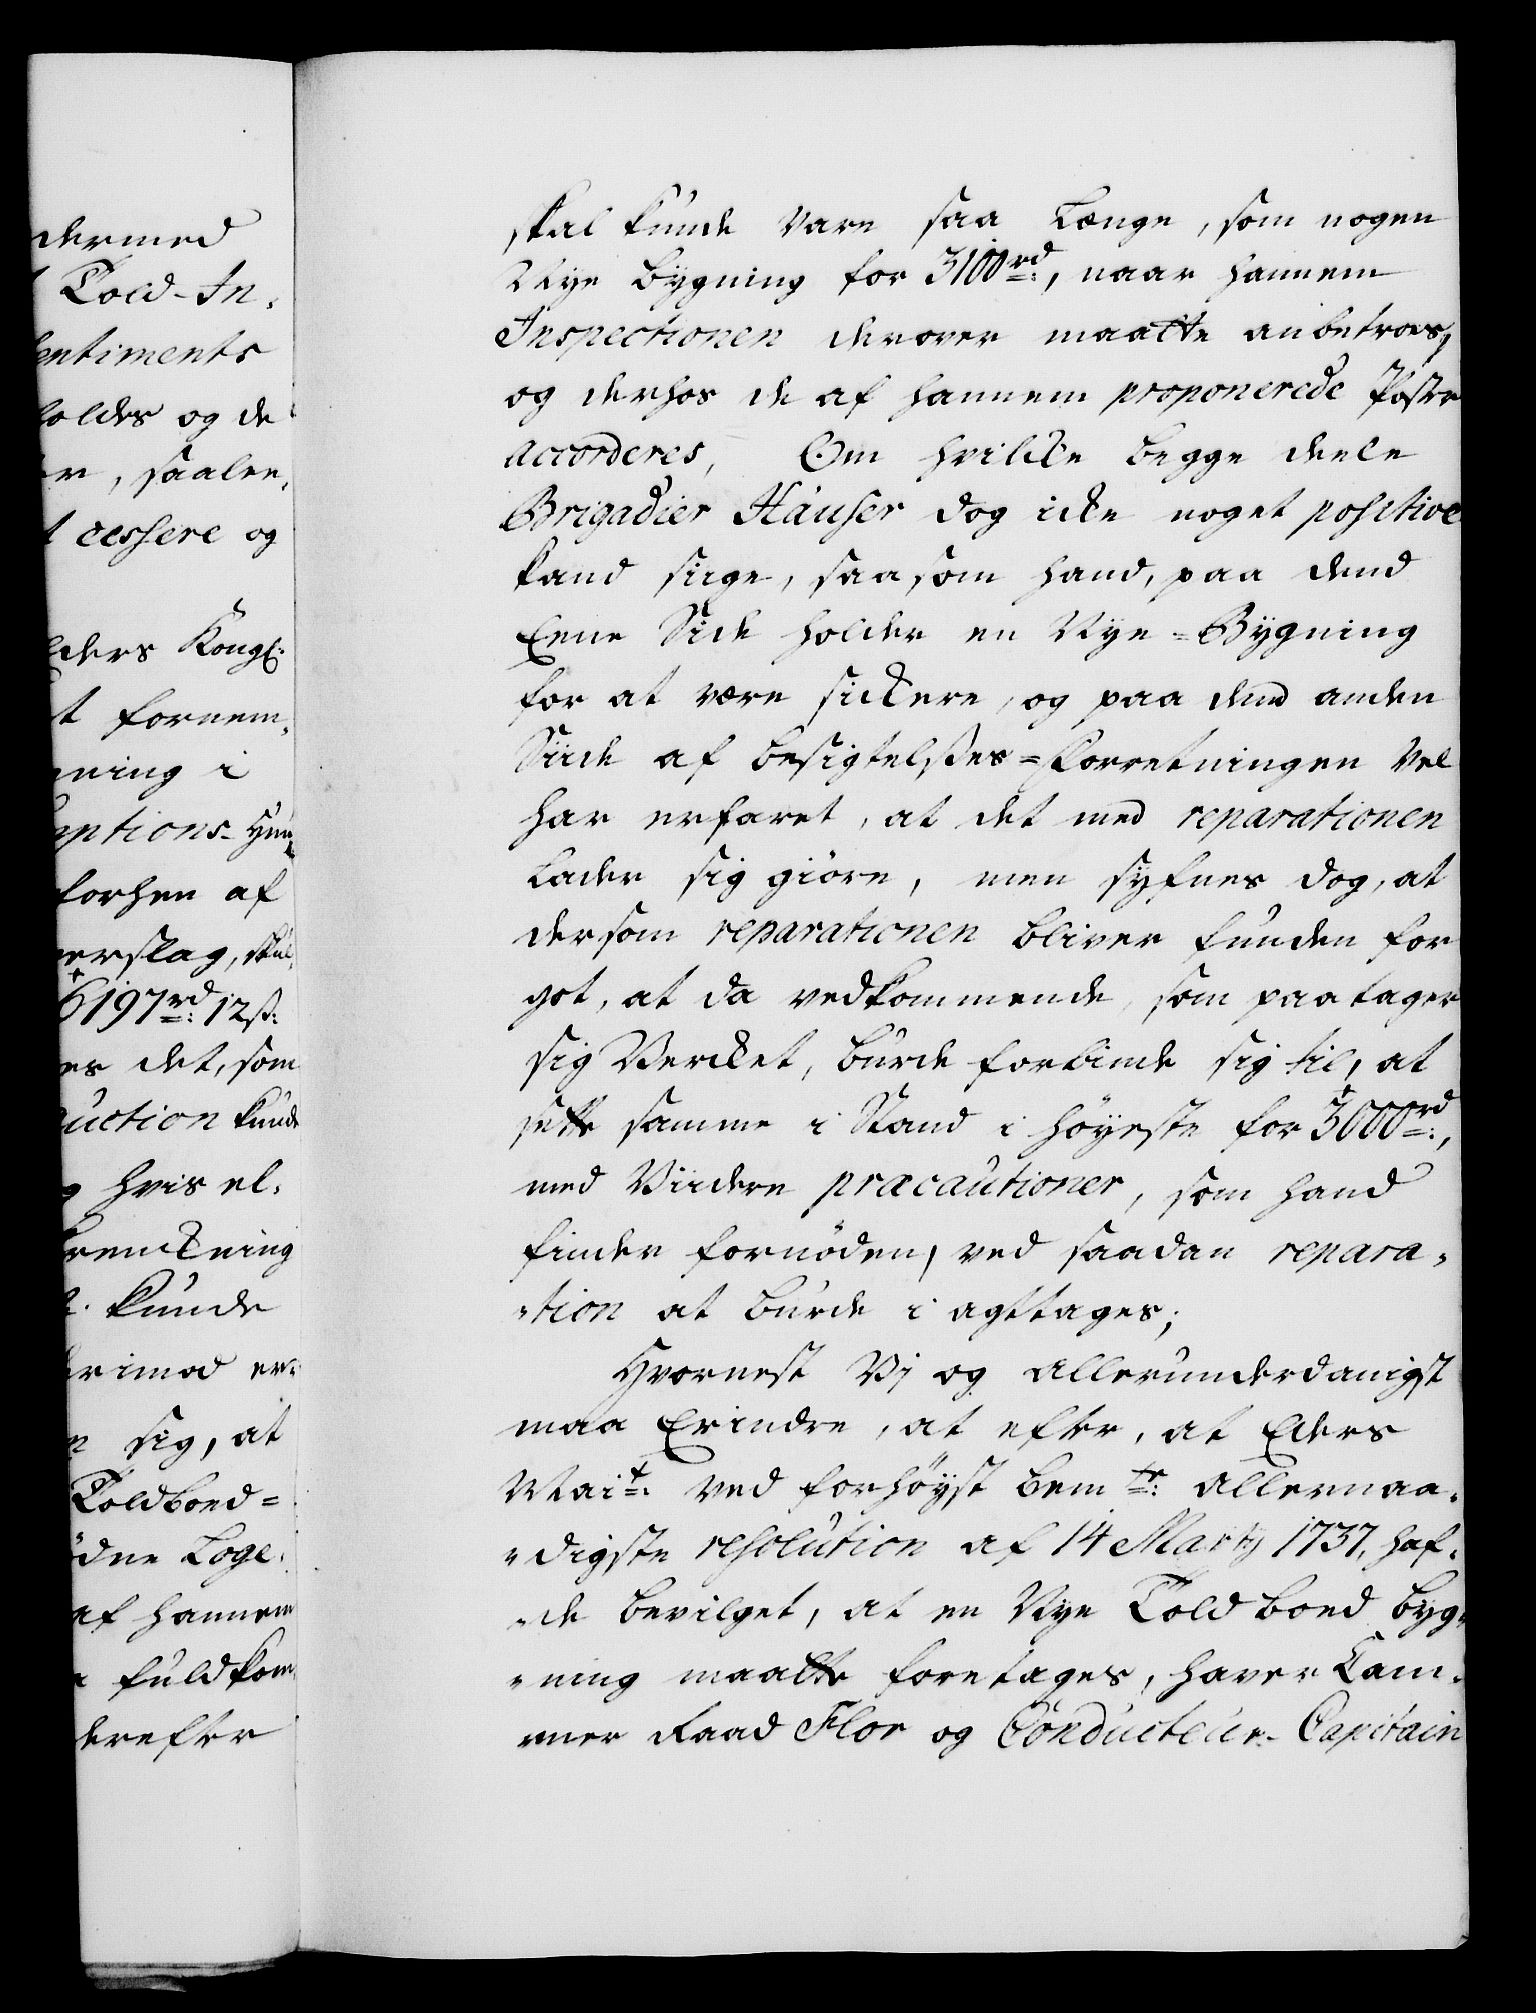 dermed
Told-In-
entiments
oldes og de
r, saalee,
t cessere og
ders Kongl:
t fornem,
ning i
ptions-Huu,
forhen af
erslag, skul,
6197rd: 12ß:
es det, som
uction kunde
hvis el-
kunde
rimod er-
sig, at
Toldboed=
ödne Loge-
af hannem
fuldkom,
derefter
skal kunde vare saa Længe, som nogen
Nye bygning for 3100rd:, naar hannem
Inspectionen derover maatte anbetroes,
og derhos de af hannem proponerede Poster
accorderes, Om hvilcke begge deele
Brigadier Häuser dog icke noget positive
kand siige, saasom hand, paa dend
Eene Side holder en Nye=Bygning
for at være sickere, og paa dend anden
Siide af besigtelses=forretningen vel
har erfaret, at det med reparationen
Lader sig giöre, men syfnes dog, at
dersom reparationen bliver funden for
got, at da vedkommende, som paatager
sig Vercket, burde forbinde sig til, at
sette samme i Stand i höyeste for 3000rd:,
med Viidere præcautioner, som hand
finder fornöden, ved saadan repara-
-tion at burde i agttages;
Hvornest Vj og allerunderdanigst
maa Erindre, at efter, at Eders
Mait: ved forhöyst bemte: allernaa-
-digste resolution af 14 Martj 1737, haf-
-de bevilget, at en Nye Toldboed byg-
-ning maatte foretages, haver Cam-
mer Raad Flor og Conducteur-Capitain